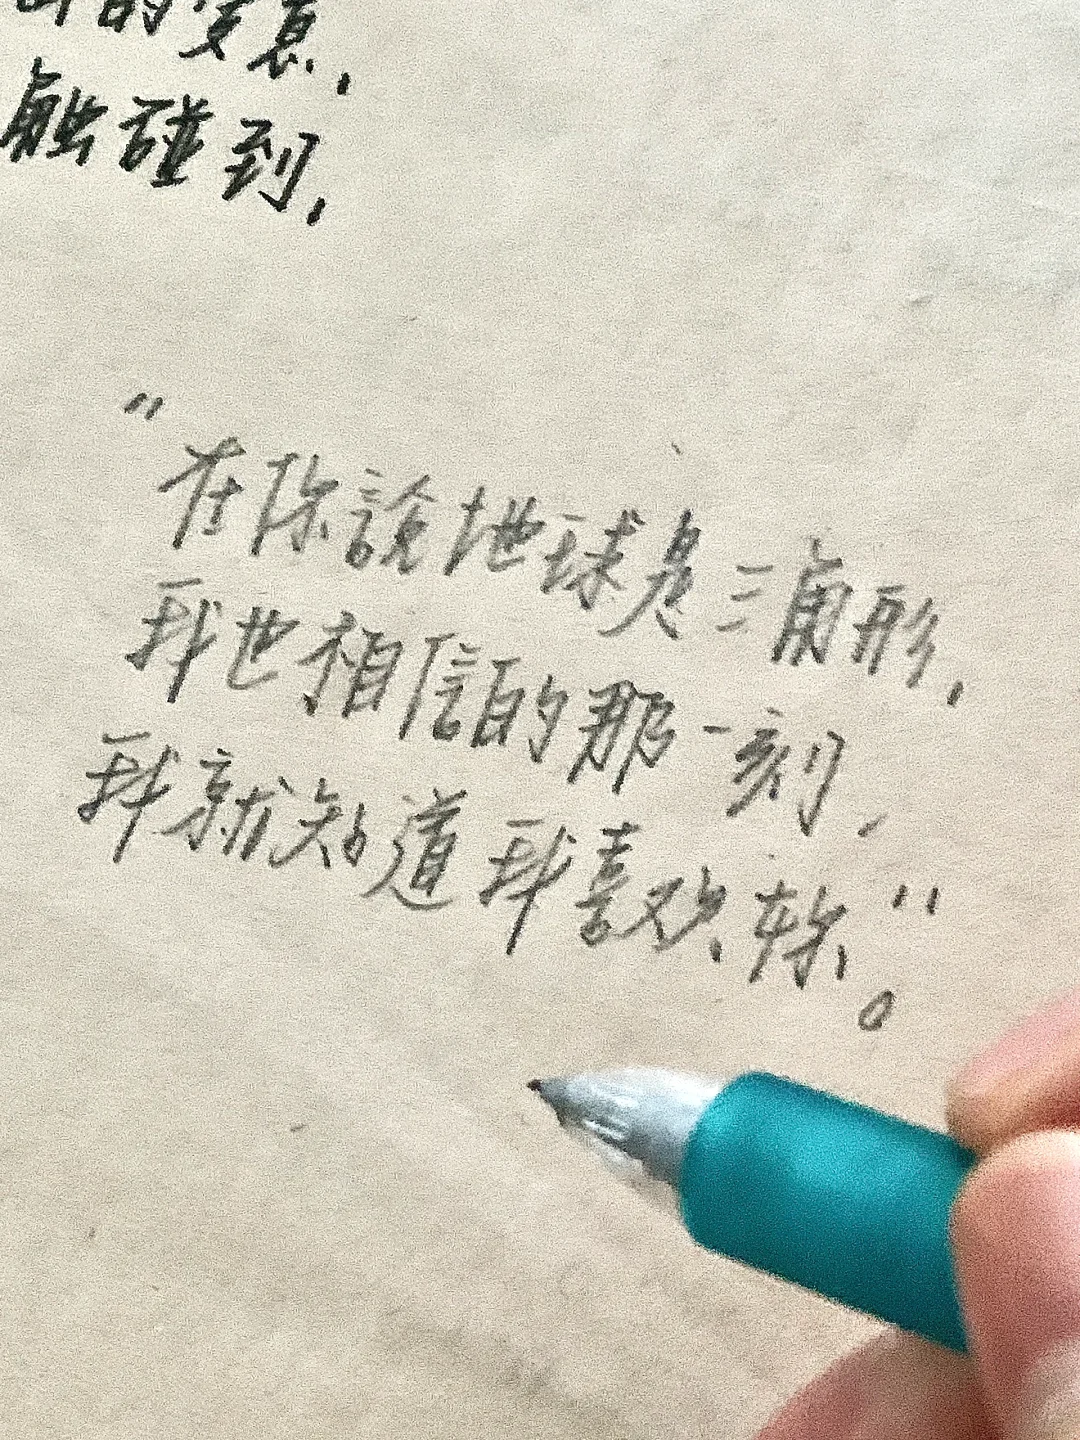 的爱意，
触碰到，
"在你說地球是三角形，
我也相信的那一刻，
我就知道我喜欢你"。